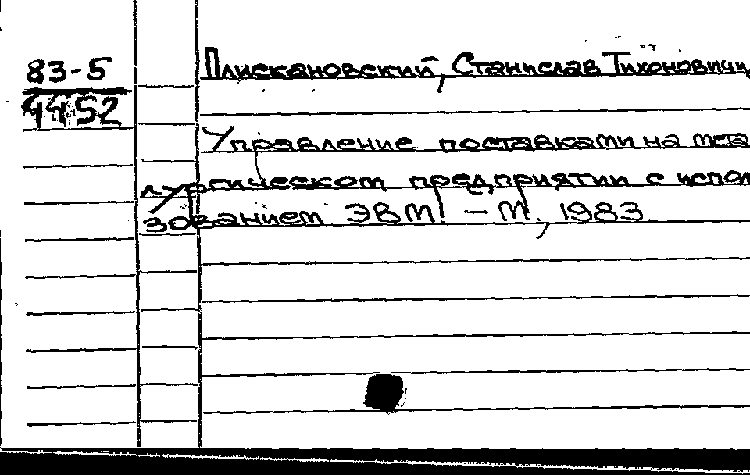 83-5
4452
Плискановский, Станислав Тихонович
Управление поставками на мета
лургическом предприятии с испол
зованием ЭВМ. – М., 1983